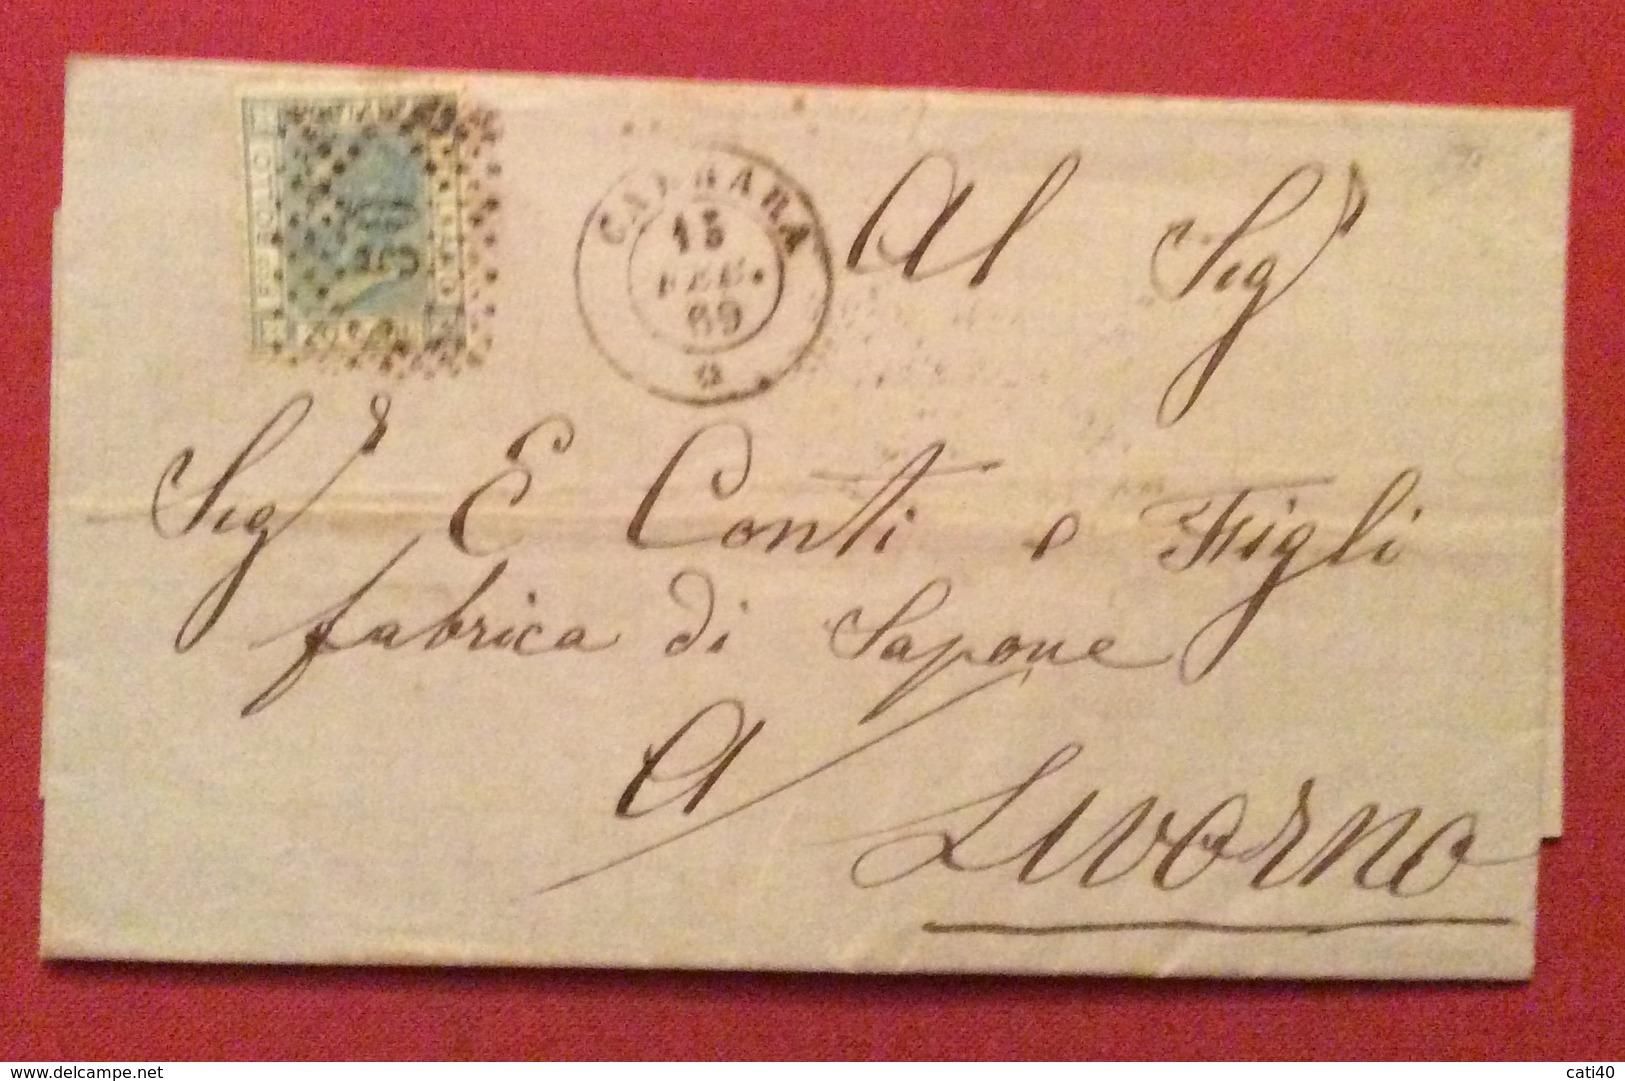 CARRARA
15
69
Al Sigr
Sigr E Conti e Figli
fabrica di Sapone
A Livorno
FR. BOLLO
www.delcampe.net
cati40